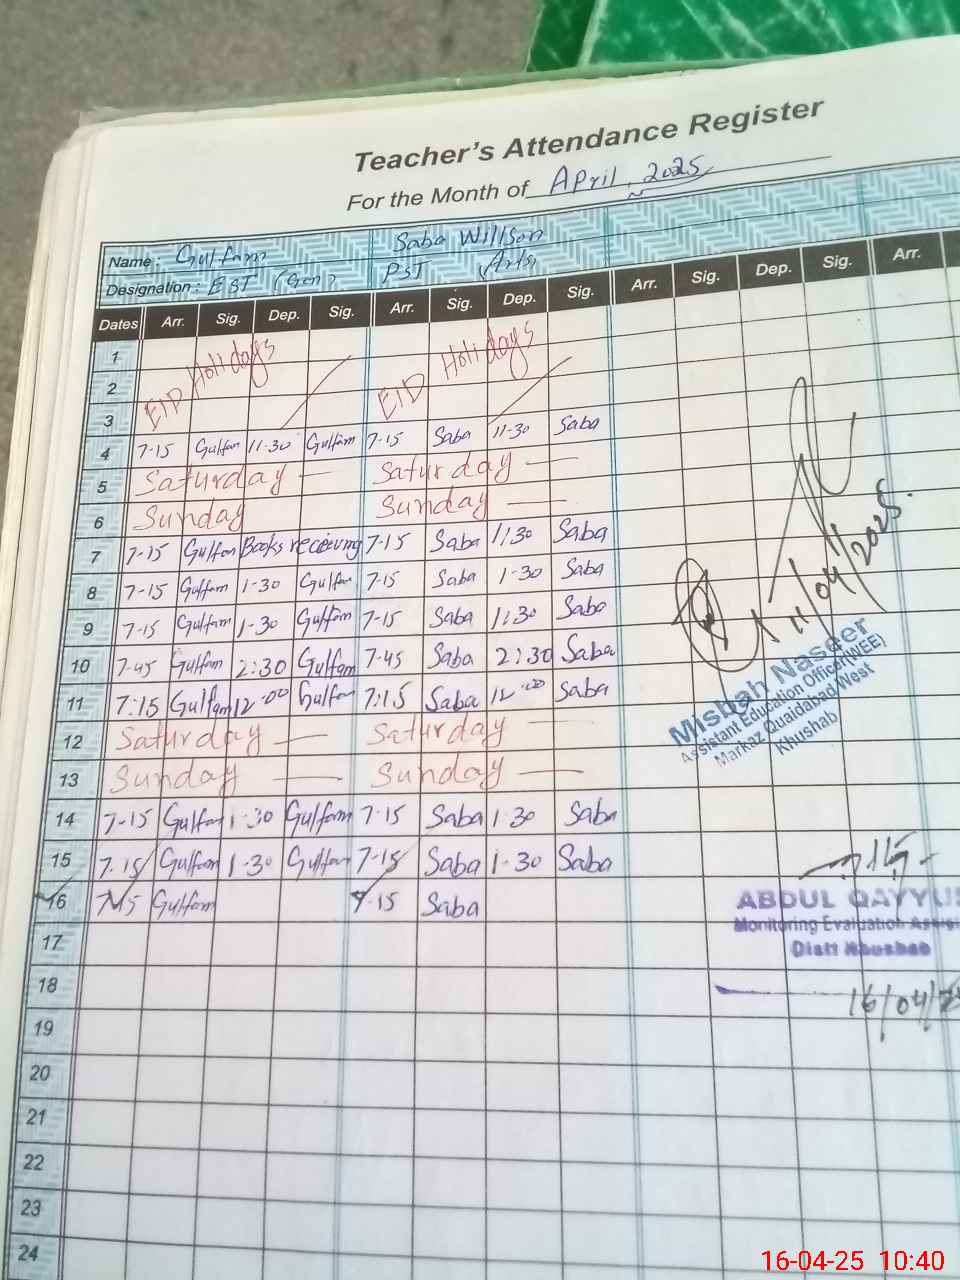 Teacher's Attendance Register
For the Month of April, 2025
Name : Gulfam Saba Willson
Designation : EST (Gen) PST (Arts)
Dates Arr. Sig. Dep. Sig. Arr. Sig. Dep. Sig. Arr. Sig. Dep. Sig. Arr.
1
2 EID Holidays EID Holidays
3
4 7-15 Gulfam 11-30 Gulfam 7-15 Saba 11-30 Saba
5 Saturday — Saturday —
6 Sunday Sunday —
7 7-15 Gulfam Books receiving 7-15 Saba 1:30 Saba
8 7-15 Gulfam 1-30 Gulfam 7-15 Saba 1-30 Saba
9 7-15 Gulfam 1-30 Gulfam 7-15 Saba 1:30 Saba
10 7-45 Gulfam 2:30 Gulfam 7-45 Saba 2:30 Saba
11 7:15 Gulfam 12:00 Gulfam 7:15 Saba 12:00 Saba
12 Saturday — Saturday —
13 Sunday — Sunday —
14 7-15 Gulfam 1-30 Gulfam 7-15 Saba 1-30 Saba
15 7-15 Gulfam 1-30 Gulfam 7-15 Saba 1-30 Saba
16 7-15 Gulfam 7-15 Saba
17
18
19
20
21
22
23
24
11/04/2025
Misbah Naseer
Assistant Education Officer(WEE)
Markaz Quaidabad West
Khushab
ABDUL QAYYU
Monitoring Evaluation
Distt Khushab
16/04/2
16-04-25 10:40